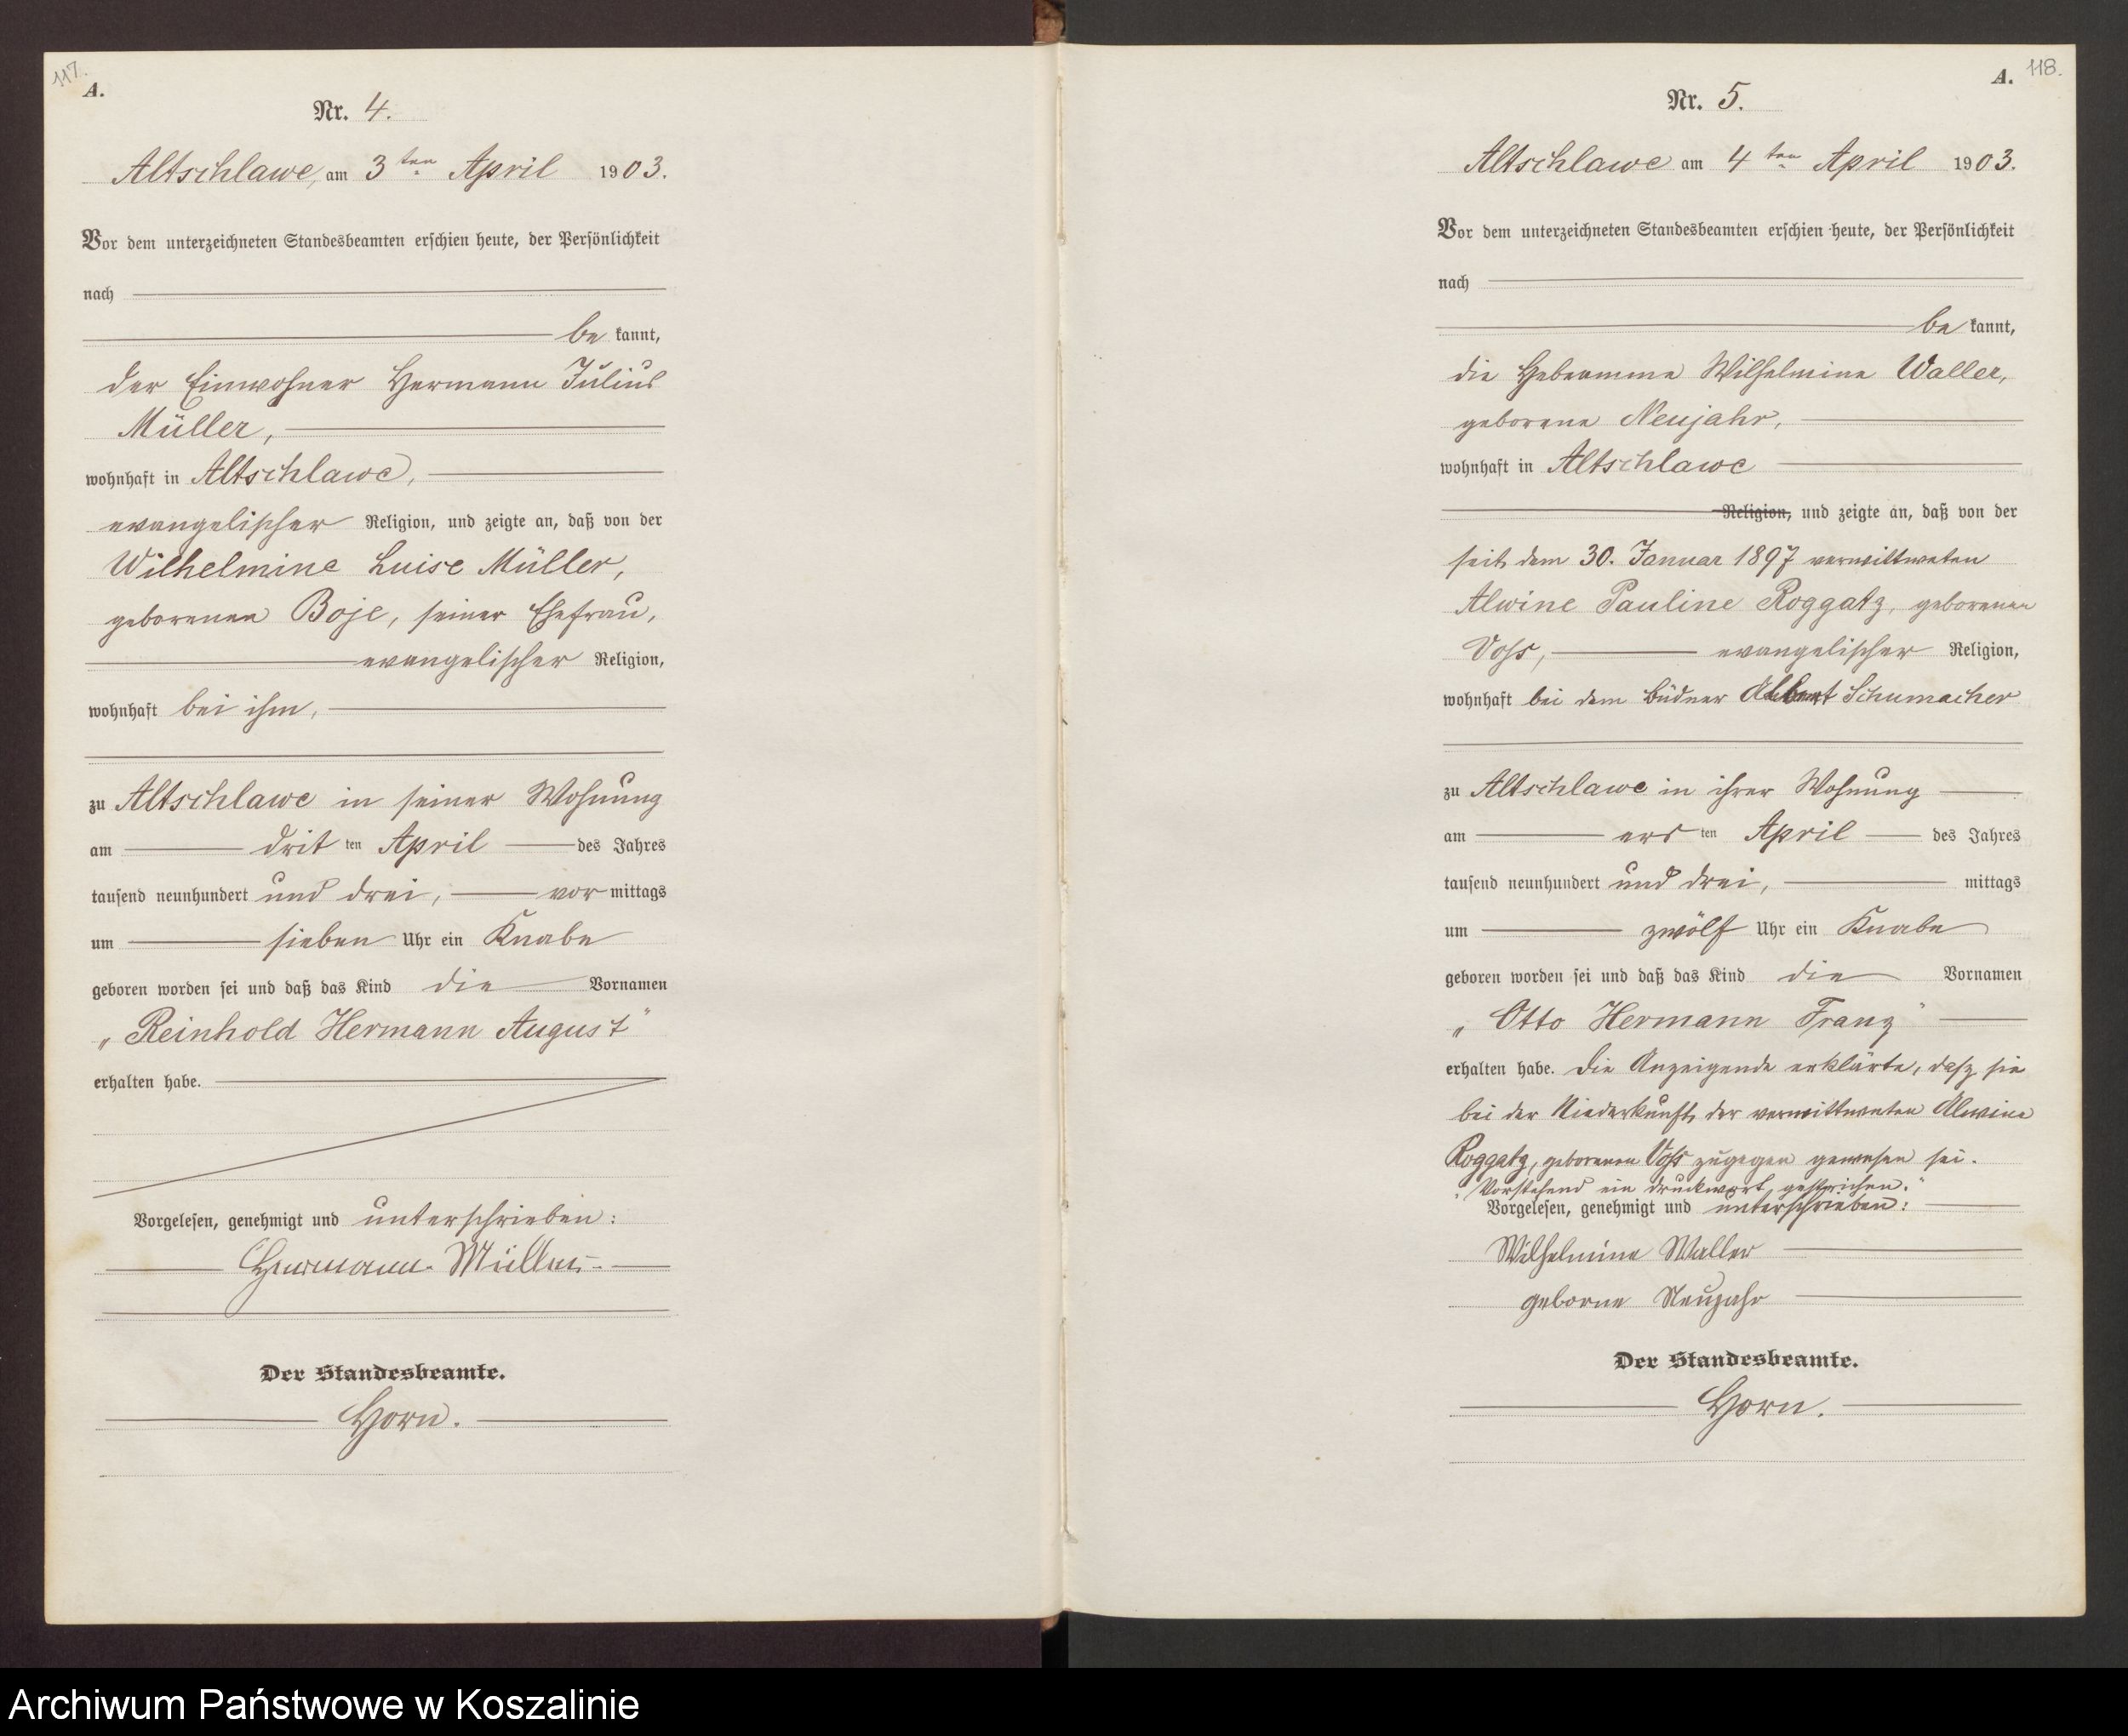 117.
A.
Nr. 4.
Altschlawe, am 3ten April 1903.
Vor dem unterzeichneten Standesbeamten erschien heute, der Persönlichkeit
nach
be kannt,
der Einwohner Hermann Julius
Müller,
wohnhaft in Altschlawe,
evangelischer Religion, und zeigte an, daß von der
Wilhelmine Luise Müller,
geborenen Boje, seiner Ehefrau,
evangelischer Religion,
wohnhaft bei ihm,
zu Altschlawe in seiner Wohnung
am drit ten April des Jahres
tausend neunhundert und drei, vor mittags
um sieben Uhr ein Knabe
geboren worden sei und daß das Kind die Vornamen
„Reinhold Hermann August"
erhalten habe.
Vorgelesen, genehmigt und unterschrieben:
Hermann Müller
Der Standesbeamte.
Horn.
A. 118.
Nr. 5.
Altschlawe am 4ten April 1903.
Vor dem unterzeichneten Standesbeamten erschien heute, der Persönlichkeit
nach
be kannt,
die Hebeamme Wilhelmine Waller,
geborene Neujahr,
wohnhaft in Altschlawe
Religion, und zeigte an, daß von der
seit dem 30. Januar 1897 verwittweten
Alwine Pauline Roggatz, geborenen
Voss, evangelischer Religion,
wohnhaft bei dem Büdner Albert Schumacher
zu Altschlawe in ihrer Wohnung
am ers ten April des Jahres
tausend neunhundert und drei, mittags
um zwölf Uhr ein Knabe
geboren worden sei und daß das Kind die Vornamen
„Otto Hermann Franz"
erhalten habe. Die Anzeigende erklärte, dasz sie
bei der Niederkunft der verwittweten Alwine
Roggatz, geborenen Voss zugegen gewesen sei.
"Vorstehend ein Druckwort gestrichen."
Vorgelesen, genehmigt und unterschrieben:
Wilhelmine Waller
geborne Neujahr
Der Standesbeamte.
Horn.
Archiwum Państwowe w Koszalinie